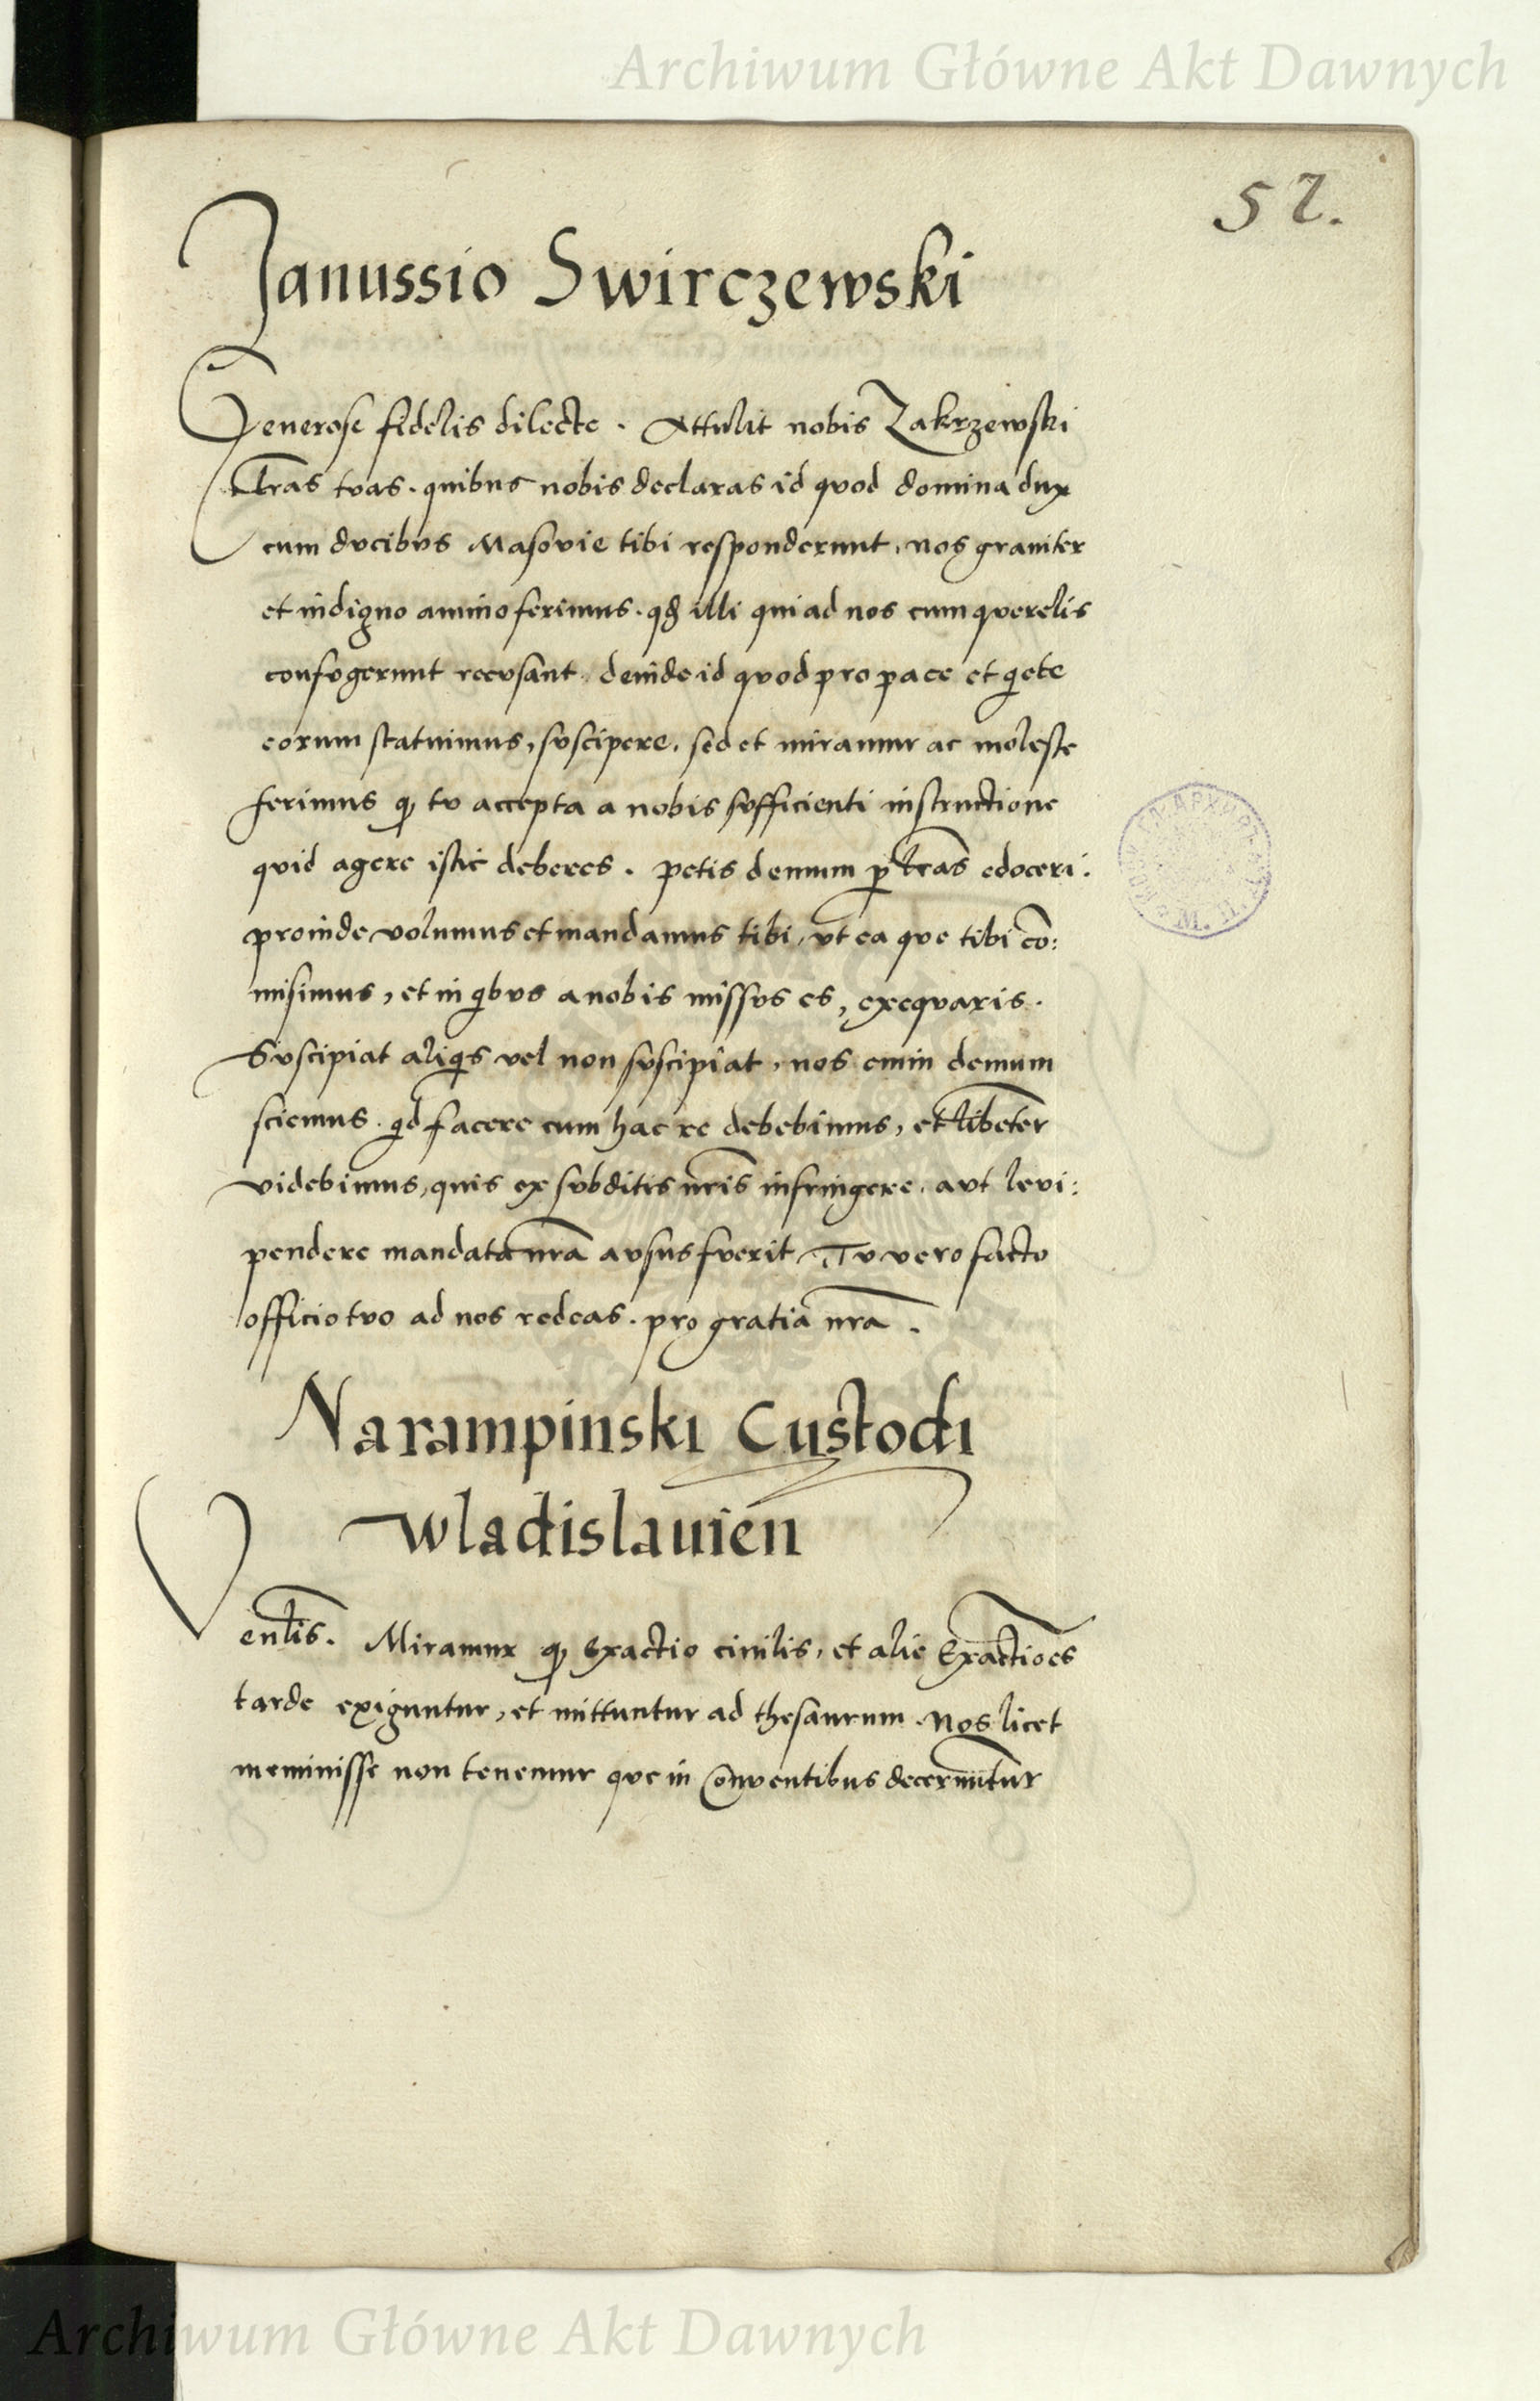 Archiwum Główne Akt Dawnych
52.
Janussio Swirczewski
Generose fidelis dilecte. Attulit nobis Zakrzewski
l̅ras tvas. quibus nobis declaras id qvod domina dux
cum dvcibvs Masovie tibi responderunt, nos graviter
et indigno animo ferimus. qd illi qui ad nos cum qverelis
confvgerunt recvsant deinde id qvod pro pace et qiete
eorum statuimus, svscipere. sed et miramur ac moleste
ferimus q tv accepta a nobis svfficienti instructione
qvid agere istic deberes. petis demum p l̅ras edoceri.
proinde volumus et mandamus tibi, vt ea qve tibi co̅:
misimus, et in qibvs a nobis missvs es, exeqvaris.
Svscipiat aliqis vel non svscipiat, nos enim demum
sciemus. qid facere cum hac re debebimus, et libe̅ter
videbimus, quis ex svbditis nr̅is infringere. avt levi:
pendere mandata nr̅a avsus fverit Tv vero facto
officio tvo ad nos redeas. pro gratia nr̅a.
Narampinski Custodi
Wladislavien̅
Ven̅lis. Miramur q exactio civilis, et alie Exactio̅es
tarde exiguntur, et mittuntur ad thesaurum. Nos licet
meminisse non tenemur qve in Conventibus decernu̅tur
Archiwum Główne Akt Dawnych